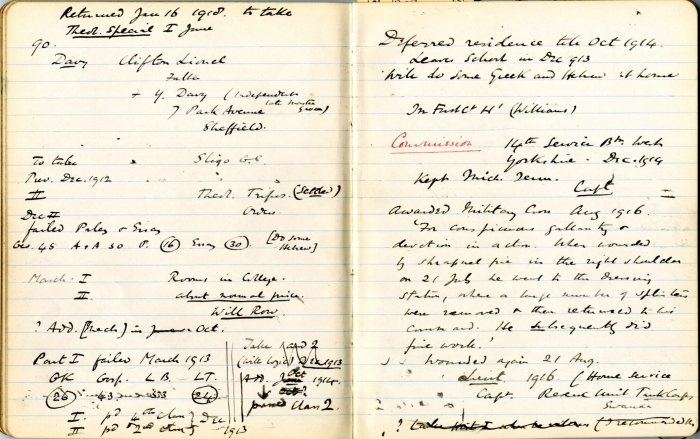 Returned Jan 16 1918. to take
Theol. Special I June
90.
Davy Clifton Lionel
+ Y. Davy (Independent
7 Park Avenue late master grocer)
Sheffield.
To take Sligo G.C.
Prev. Dec. 1912
II Theol. Tripos. (Settled)
Dec II Orders.
failed Paley & Essay
Ges. 45 A + A 30 P. (16) Essay (30) [Do some Hebrew]
March. I Rooms in College.
II about normal price.
Will Row.
? Add. (Mech) in June or Oct.
Part I failed March 1913
GK Gosp. L.B. LT.
(26) 43 33 (24)
I pd 4th class } Dec
II pd 2nd class } 1913
Take I and 2
(with Logic) Dec 1913
Add. June Oct 1914.
Oct?
passed Class 2.
Deferred residence till Oct 1914.
Leaves School in Dec 913
Will do some Greek and Hebrew at home
In First Ct H' (Williams)
Commission 14th Service Btn. West
Yorkshire - Dec. 1914
Kept Mich. Term.
Capt
Awarded Military Cross Aug 1916.
'For conspicuous gallantry &
devotion in action. When wounded
by shrapnel fire in the right shoulder
on 21 July he went to the dressing
station, where a large number of splinters
were removed & then returned to his
command. He subsequently did
fine work.'
Wounded again 21 Aug.
Lieut 1916 (Home service
Capt. Reserve Unit Tank Corps
Swanage
? take part I